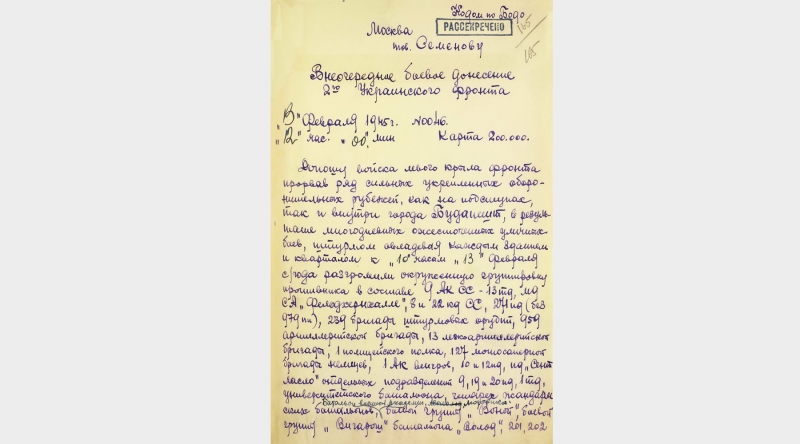 Кодом по Бодо
РАССЕКРЕЧЕНО
165
Москва
тов. Семенову
Внеочередное боевое донесение
2го Украинского фронта
"13" февраля 1945г. №0046.
"12" час. "00" мин Карта 200.000.
Доношу войска левого крыла фронта
прорвав ряд сильных укрепленных оборо-
нительных рубежей, как на подступах,
так и внутри города Будапешт, в резуль-
тате многодневных ожесточенных уличных
боев, штурмом овладевая каждым зданием
и кварталом к "10" часам "13" февраля
с/года разгромили окруженную группировку
противника в составе 9 АК СС - 13 тд, мд
СА "Фельдхернхалле", 8 и 22 кд СС, 271 пд (без
979 пп), 239 бригады штурмовых орудий, 959
артиллерийской бригады, 13
бригады, 1 полицейского полка, 127 мотосаперной
бригады немцев, 1 АК венгров, 10 и 12 пд, пд "Сент
Ласло" отдельных подразделений 9, 19 и 20 пд, 1 тд,
университетского батальона, четырех жандарм-
батальон военной академии,
ских батальонов, боевой группы боевой
группы батальона 201, 202